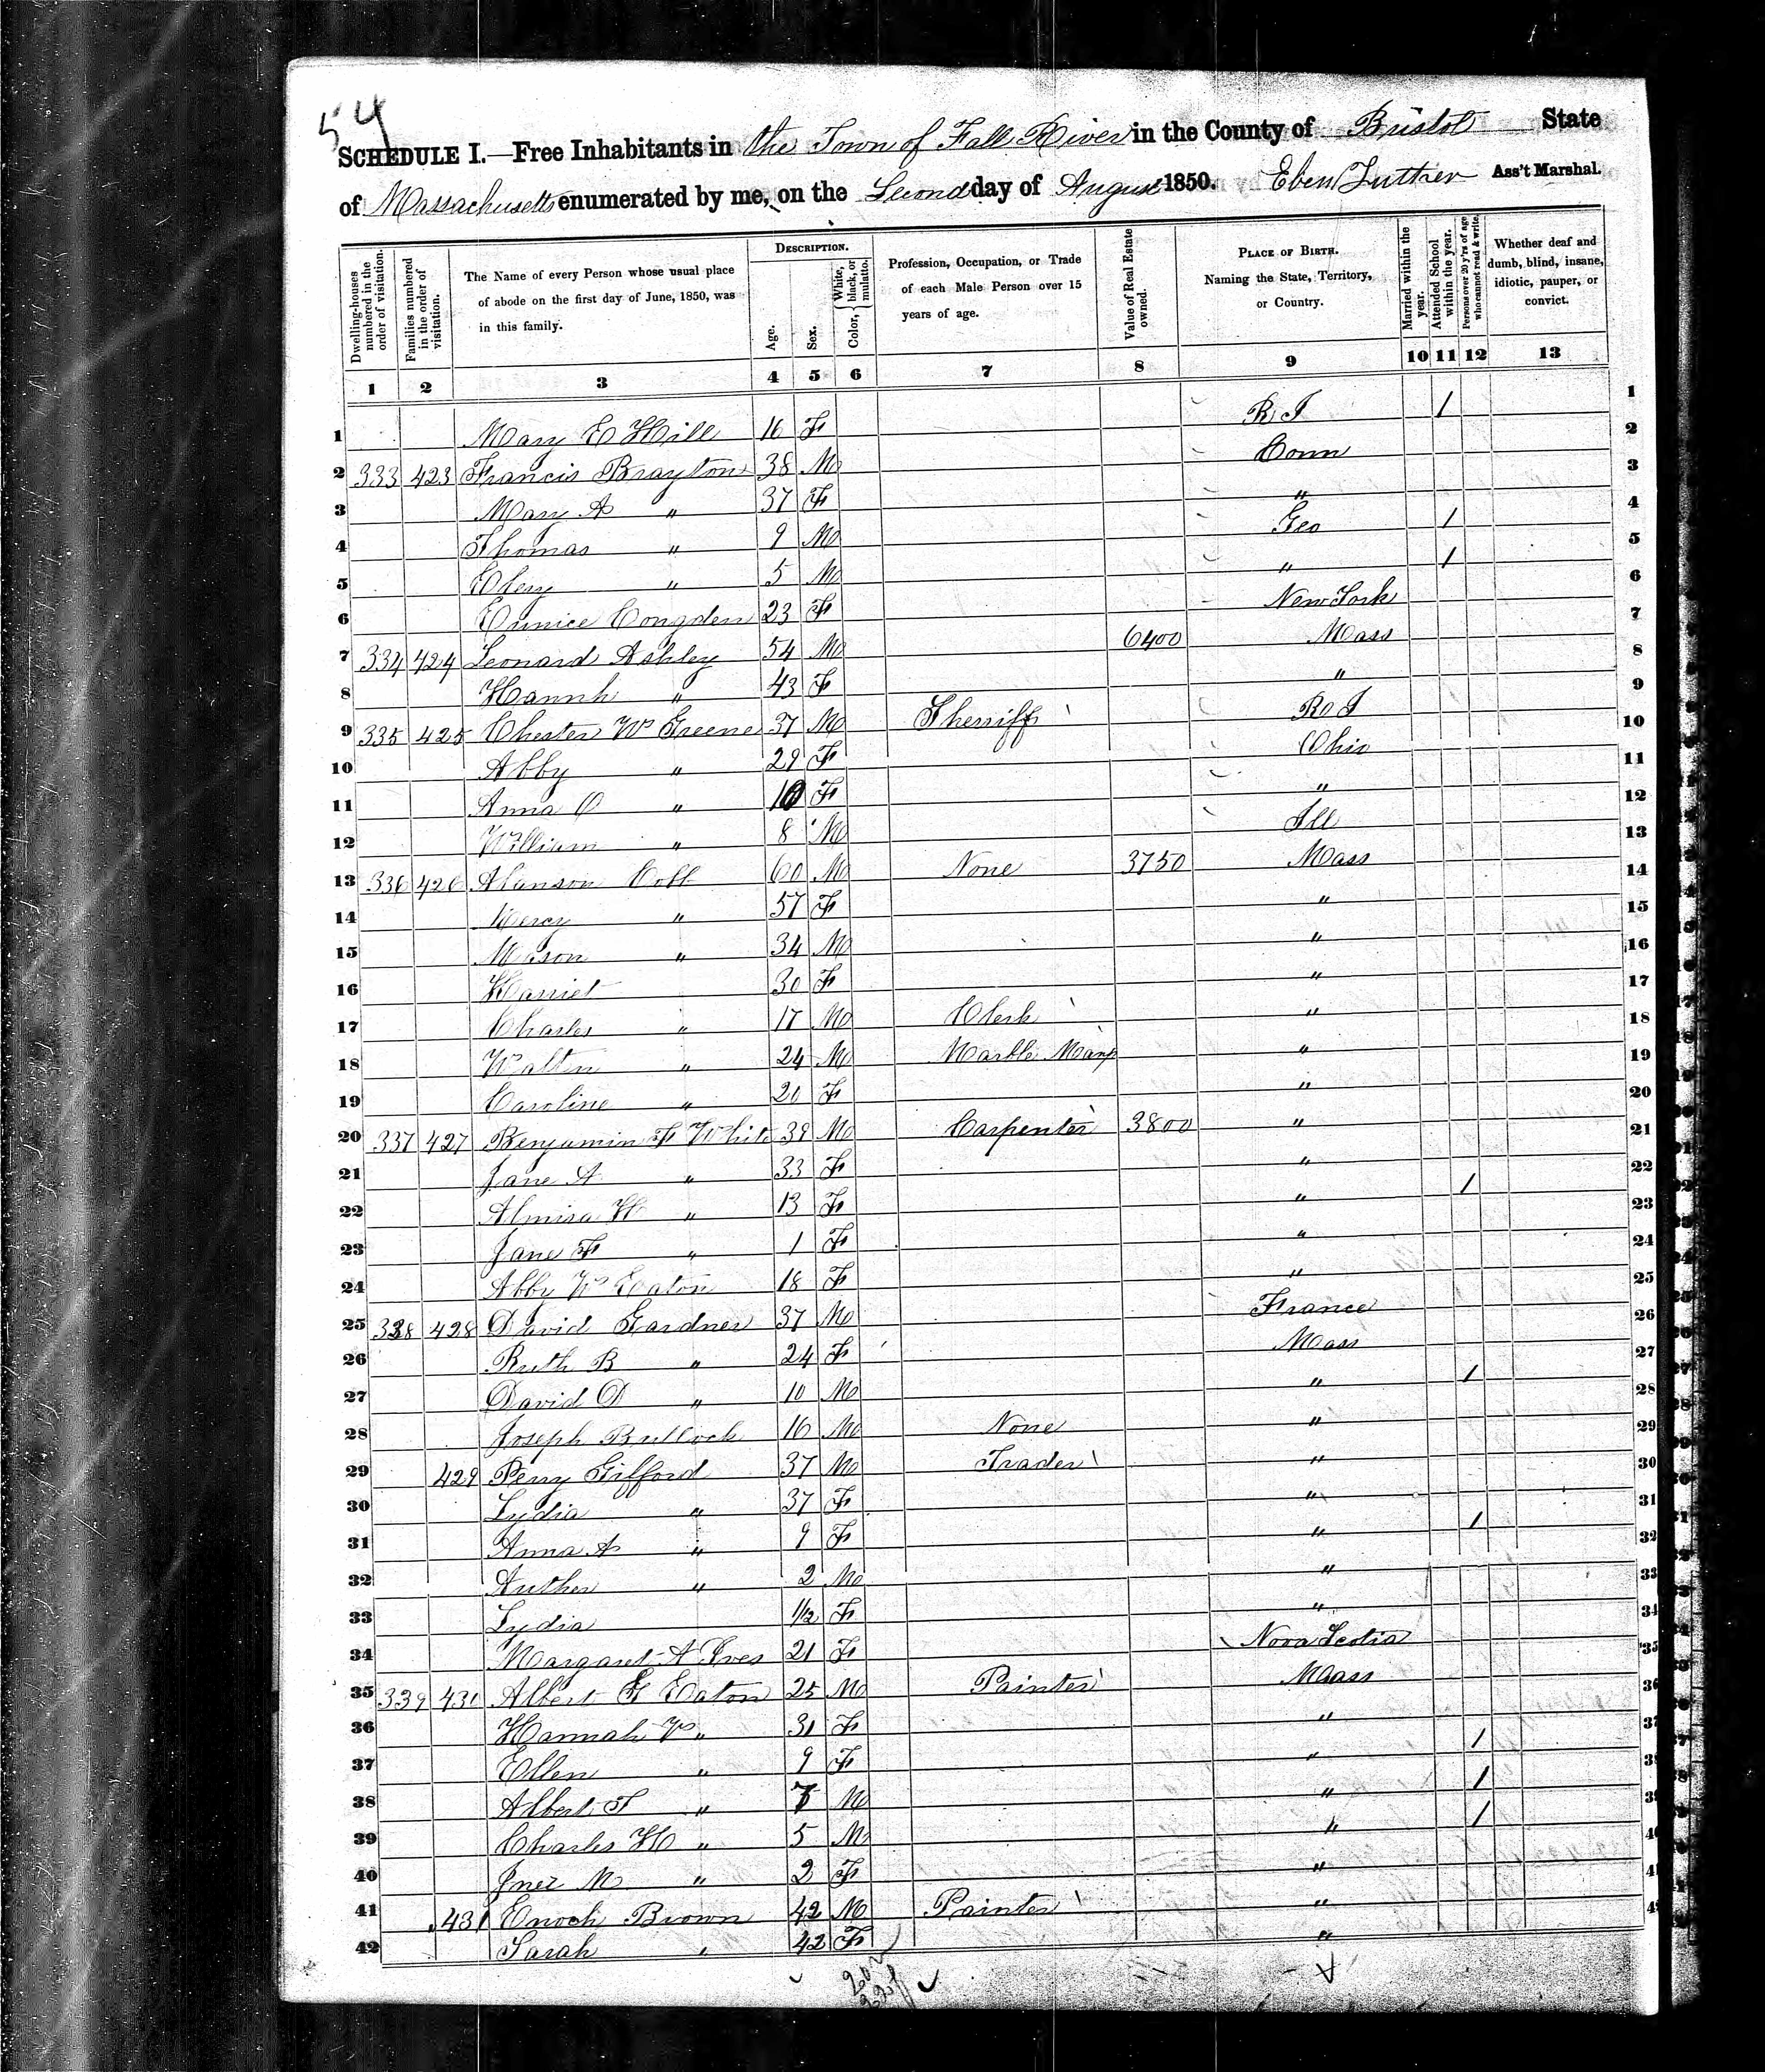 54
SCHEDULE I.—Free Inhabitants in the Town of Fall River in the County of Bristol State
of Massachusetts enumerated by me, on the Second day of August 1850. Eben Luther Ass't Marshal.
Dwelling-houses numbered in the order of visitation. Families numbered in the order of visitation. The Name of every Person whose usual place of abode on the first day of June, 1850, was in this family. DESCRIPTION. Age. Sex. Color, White, black, or mulatto. Profession, Occupation, or Trade of each Male Person over 15 years of age. Value of Real Estate owned. PLACE OF BIRTH. Naming the State, Territory, or Country. Married within the year. Attended School within the year. Persons over 20 y'rs of age who cannot read & write. Whether deaf and dumb, blind, insane, idiotic, pauper, or convict.
1 2 3 4 5 6 7 8 9 10 11 12 13
1 Mary E Hill 16 F R I 1 1
2 333 423 Francis Brayton 38 M Conn 2
3 Mary A " 37 F " 3
4 Thomas " 9 M Geo 1 4
5 " 5 M " 1 5
6 Eunice Congden 23 F New York 6
7 334 424 Leonard Ashley 54 M 6400 Mass 7
8 Hannh " 43 F " 8
9 335 425 Chester W Greene 37 M Sherriff R I 9
10 Abby " 29 F Ohio 10
11 Anna O " 10 F " 11
12 William " 8 M Ill 12
13 336 426 Alanson Cobb 60 M None 3750 Mass 13
14 Mercy " 57 F " 14
15 Mason " 34 M " 15
16 Harriet " 30 F " 16
17 Charles " 17 M Clerk " 17
18 Walten " 24 M Marble Manf " 18
19 Caroline " 20 F " 19
20 337 427 Benjamin F White 39 M Carpenter 3800 " 20
21 Jane A " 33 F " 21
22 Almira H " 13 F " 1 22
23 Jane F " 1 F " 23
24 Abby W Eaton 18 F " 24
25 338 428 David Gardner 37 M France 25
26 Ruth B " 24 F Mass 26
27 David D " 10 M " 1 27
28 Joseph Bullock 16 M None " 28
29 429 Perry Gifford 37 M Trader " 29
30 Lydia " 37 F " 30
31 Anna A " 9 F " 1 31
32 Auther " 2 M " 32
33 Lydia 1/12 F " 33
34 Margaret A Ives 21 F Nova Scotia 34
35 339 430 Albert G Eaton 25 M Painter Maass 35
36 Hannah W " 31 F " 36
37 Ellen " 9 F " 1 37
38 Albert T " 7 M " 1 38
39 Charles H " 5 M " 1 39
40 Inez M " 2 F " 40
41 431 Enoch Brown 42 M Painter " 41
42 Sarah " 42 F "